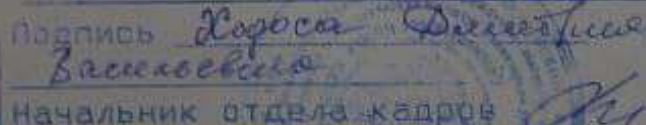 Подпись Ходоса Дмитрия
Васильевича
Начальник отдела кадров